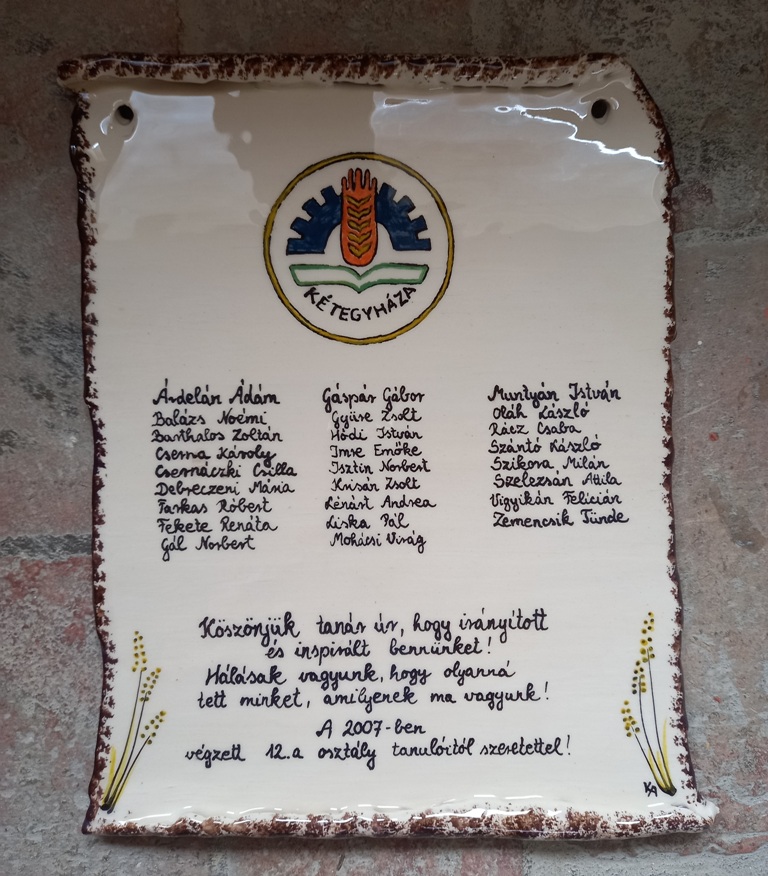 KÉTEGYHÁZA
Árdelán Ádám
Balázs Noémi
Barthalos Zoltán
Cserna Károly
Csernáczki Csilla
Debreczeni Mária
Farkas Róbert
Fekete Renáta
Gál Norbert
Gáspár Gábor
Gyüre Zsolt
Hódi István
Imre Emőke
Isztin Norbert
Krisán Zsolt
Lénárt Andrea
Liska Pál
Mohácsi Virág
Muntyán István
Oláh László
Rácz Csaba
Szántó László
Szikora Milán
Szelezsán Attila
Vigyikán Felicián
Zemencsik Tünde
Köszönjük tanár úr, hogy irányított
és inspirált bennünket!
Hálásak vagyunk, hogy olyanná
tett minket, amilyenek ma vagyunk!
A 2007-ben
végzett 12.a osztály tanulóitól szeretettel!
KA